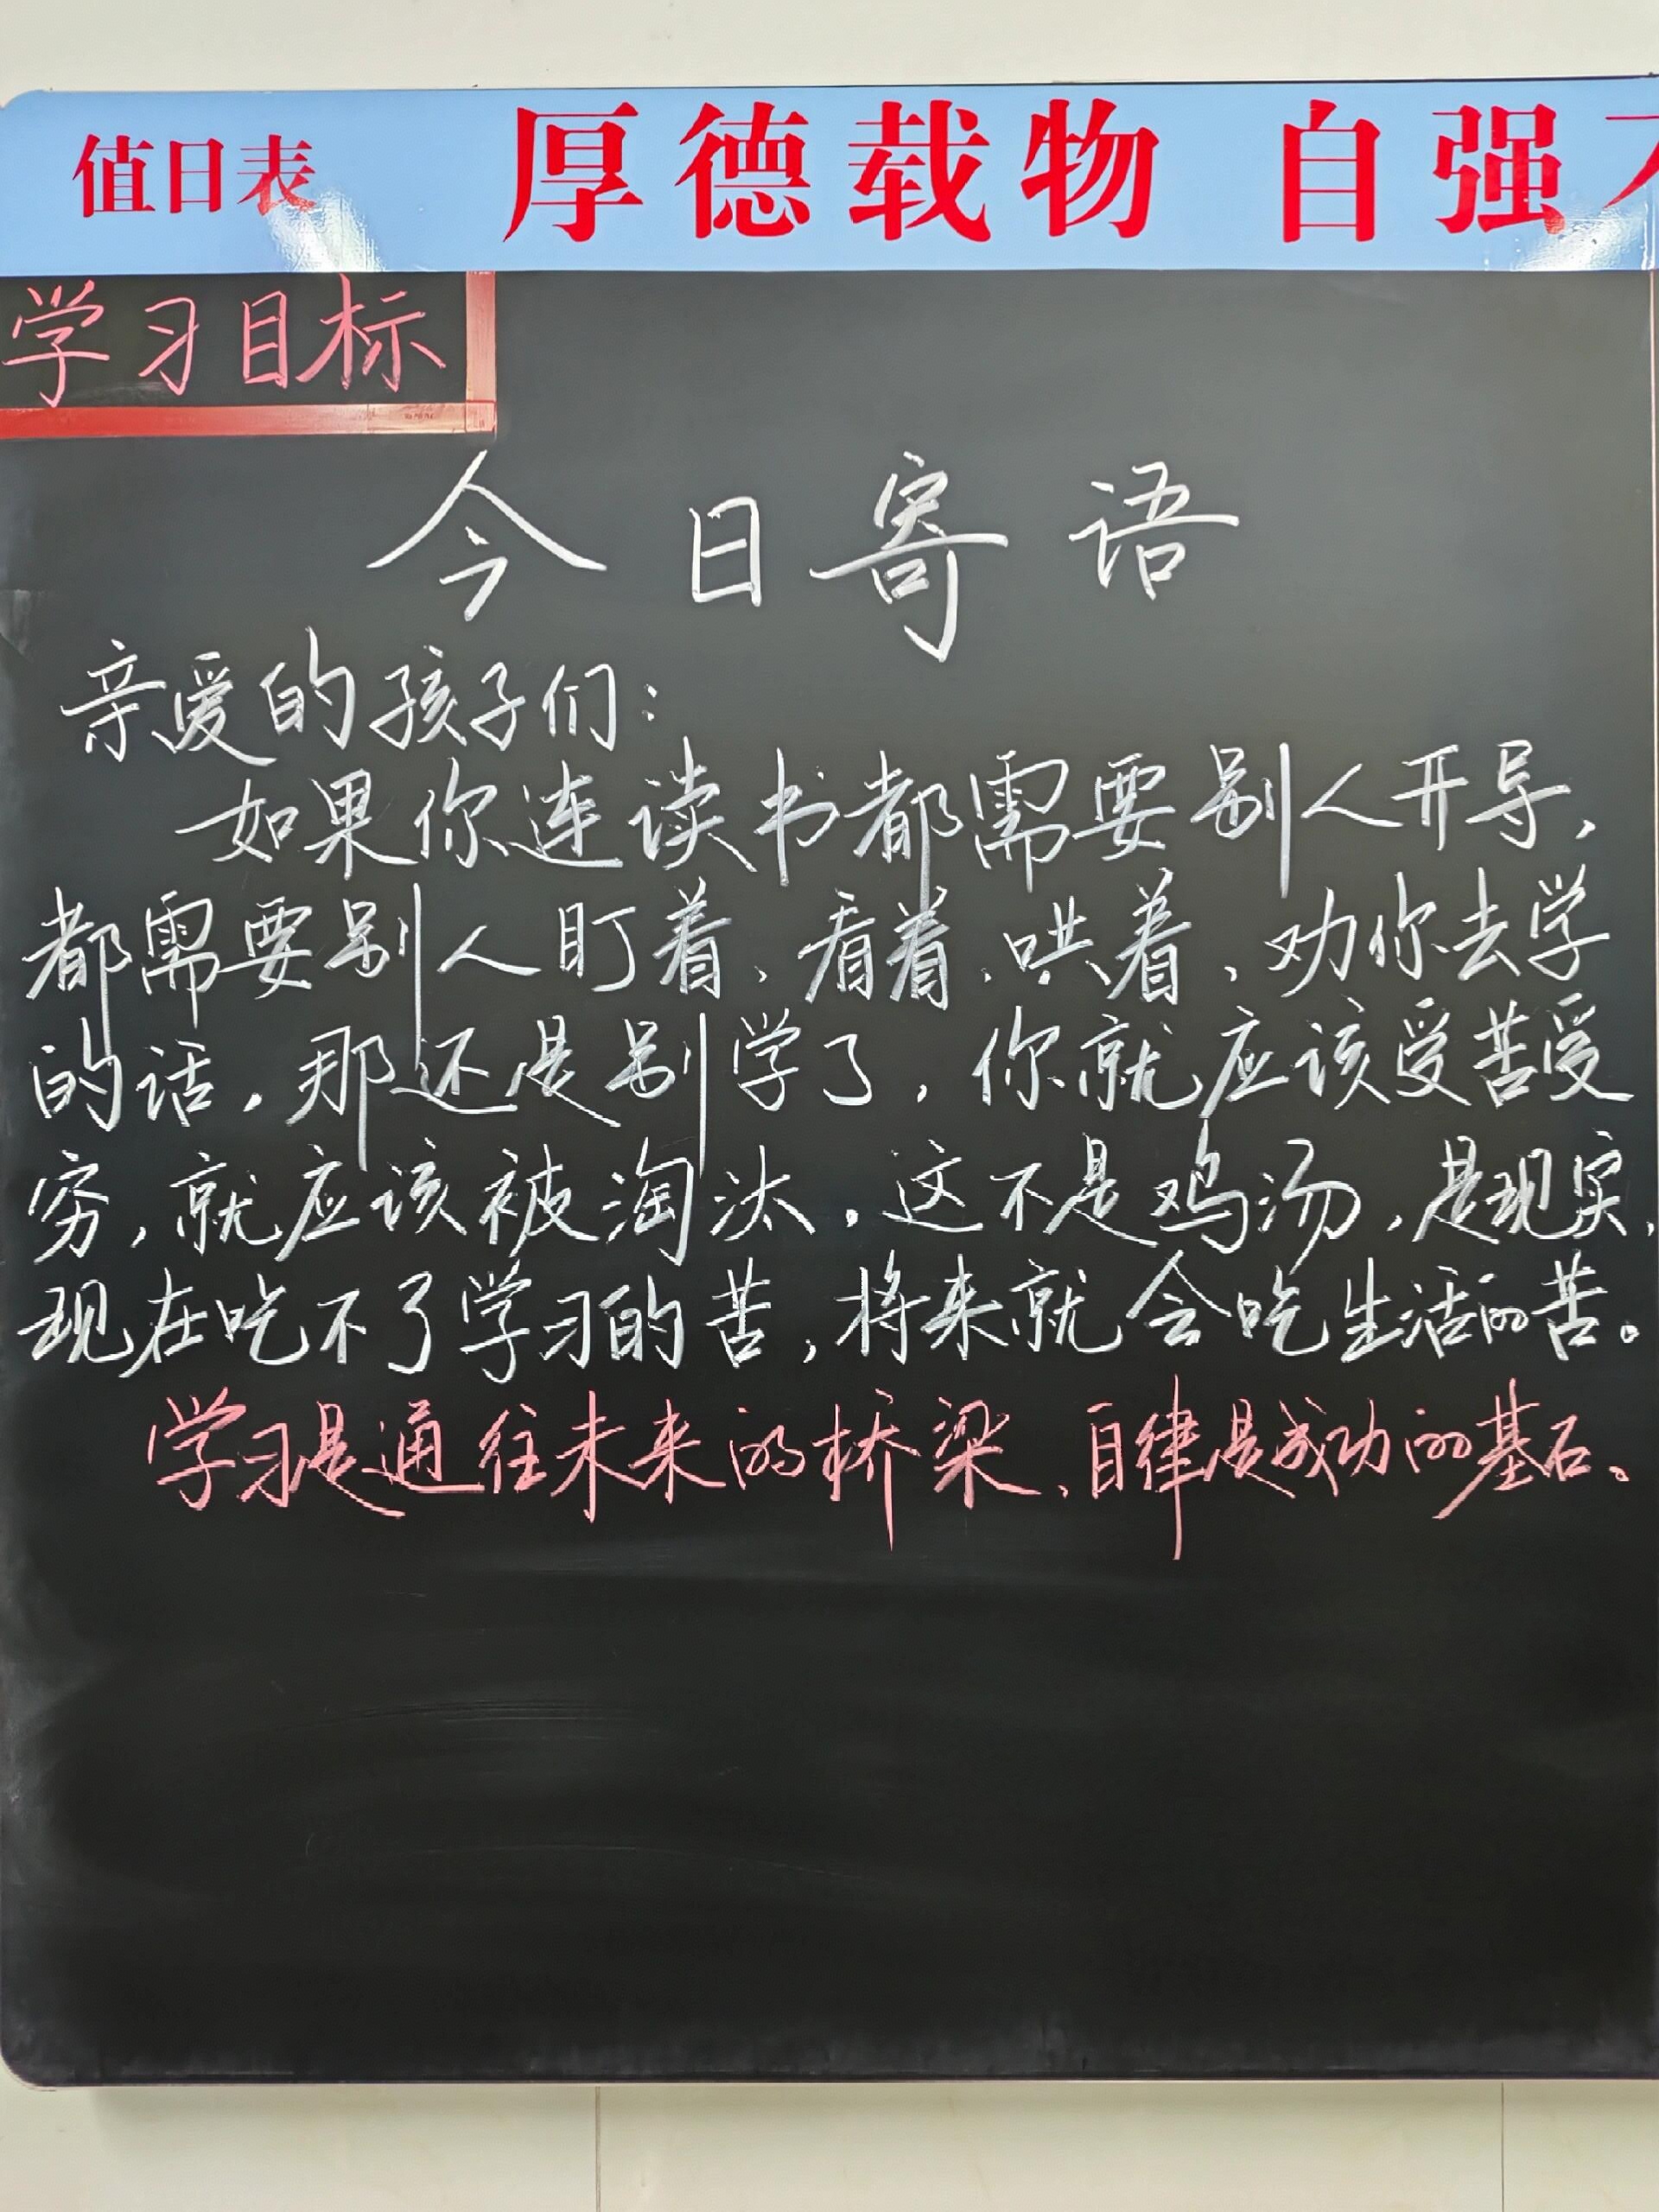 值日表 厚德载物 自强
学习目标
今日寄语
亲爱的孩子们:
如果你连读书都需要别人开导,
都需要别人盯着、看着、哄着、劝你去学
的话,那还是别学了,你就应该受苦受
穷,就应该被淘汰。这不是鸡汤,是现实,
现在吃不了学习的苦,将来就会吃生活的苦。
学习是通往未来的桥梁、自律是成功的基石。